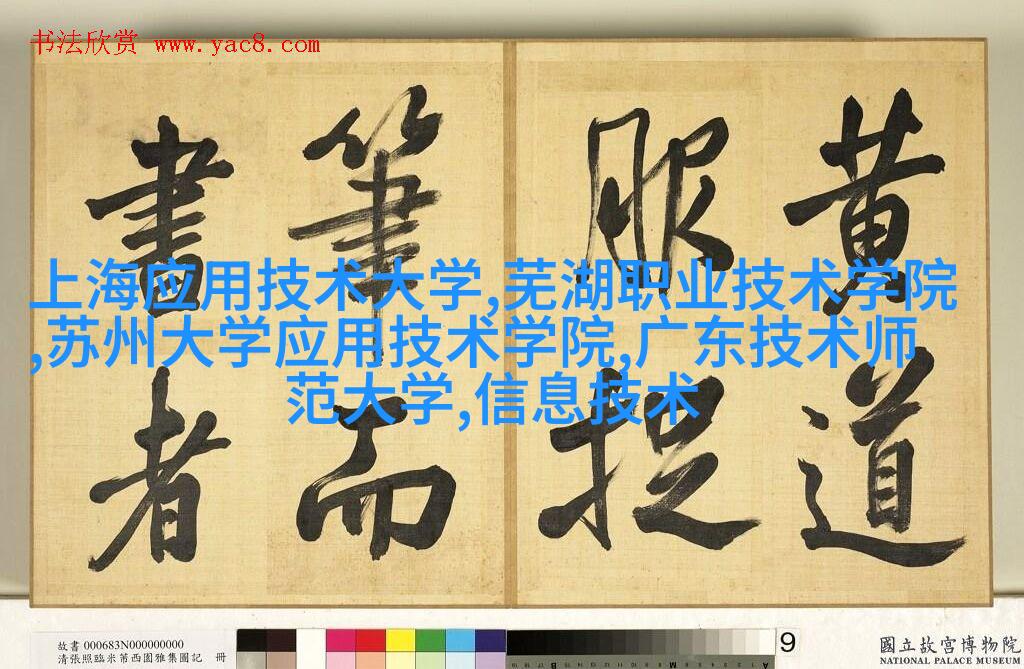 书法欣赏 www.yac8.com
黄道
服捉
筆而
書者
上海应用技术大学,芜湖职业技术学院
,苏州大学应用技术学院,广东技术师
范大学,信息技术
故書 000683N000000000
清張照臨米芾西園雅集圖記 冊
9
國立故宮博物院
NATIONAL PALACE MUSEUM